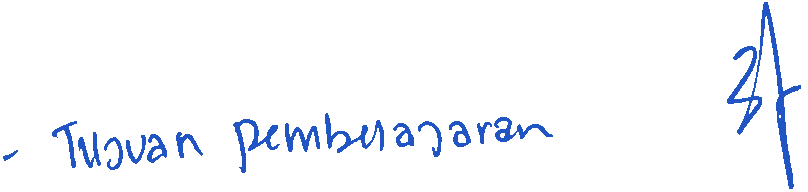 - Tujuan pembelajaran